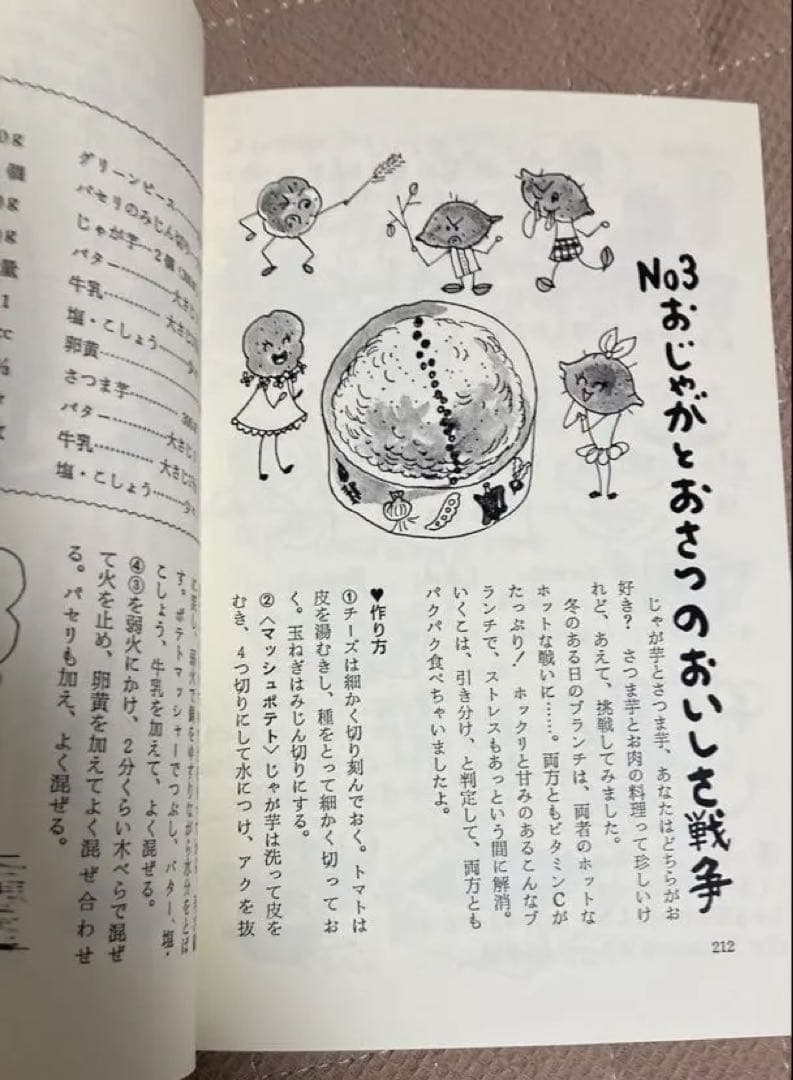 No3おじゃがとおさつのおいしさ戦争
じゃが芋とさつま芋、あなたはどちらがお
好き？ さつま芋とお肉の料理って珍しいけ
れど、あえて、挑戦してみました。
冬のある日のブランチは、両者のホットな
ホットな戦いに……。両方ともビタミンCが
たっぷり！ ホックリと甘みのあるこんなブ
ランチで、ストレスもあっという間に解消。
いくこは、引き分け、と判定して、両方とも
パクパク食べちゃいましたよ。
♥作り方
①チーズは細かく切り刻んでおく。トマトは
皮を湯むきし、種をとって細かく切ってお
く。玉ねぎはみじん切りにする。
②〈マッシュポテト〉じゃが芋は洗って皮を
むき、4つ切りにして水につけ、アクを抜
212
グリーンピース
パセリのみじん切り
じゃが芋…2個
バター……大さじ
牛乳………大さじ
塩・こしょう
卵黄
さつま芋
バター……大さじ
牛乳………大さじ
塩・こしょう
す。ポテトマッシャーでつぶし、バター、塩・
こしょう、牛乳を加えて、よく混ぜる。
④③を弱火にかけ、2分くらい木べらで混ぜ
て火を止め、卵黄を加えてよく混ぜ合わせ
る。パセリも加え、よく混ぜる。